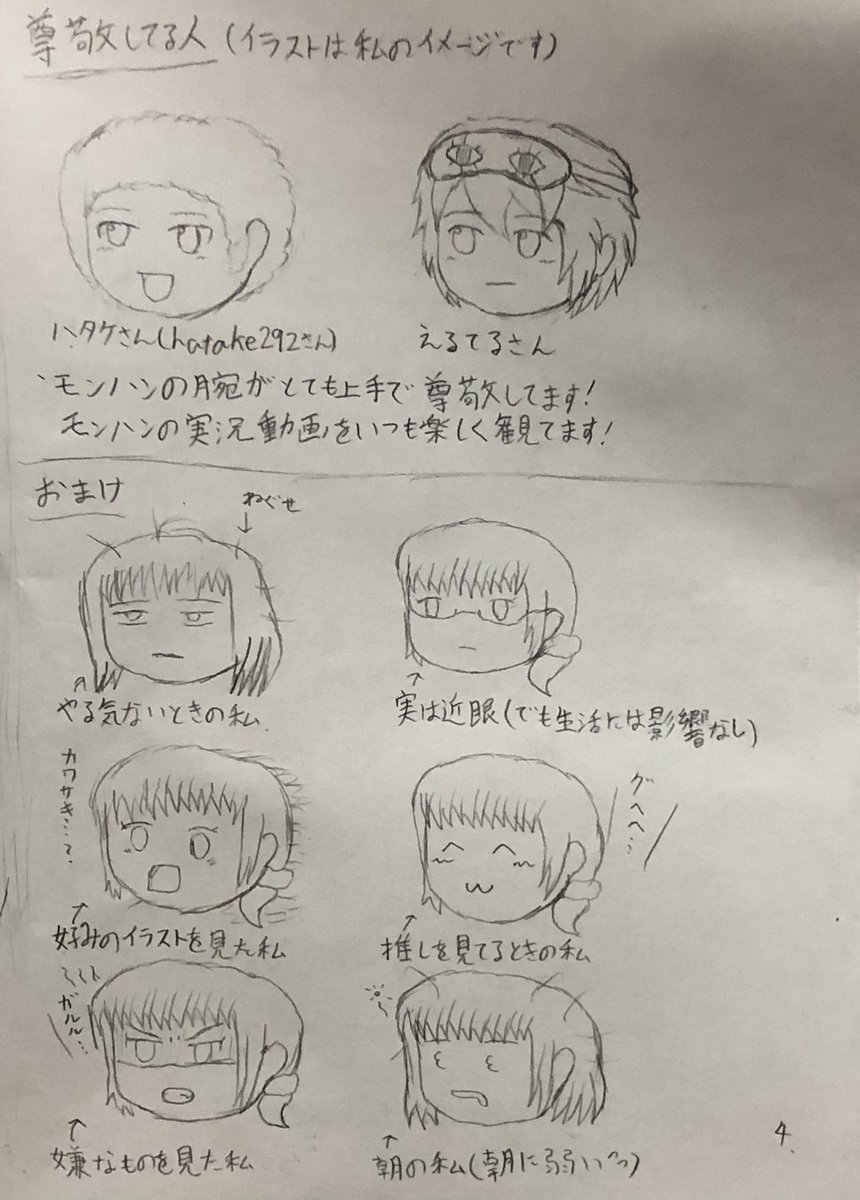 尊敬してる人(イラストは私のイメージです)
ハタケさん(hatake292さん)
えるてるさん
モンハンの腕がとても上手で尊敬してます!
モンハンの実況動画をいつも楽しく観てます!
おまけ
ねぐせ
↓
↑
やる気ないときの私
↑
実は近眼(でも生活には影響なし)
↑
好みのイラストを見た私
グヘヘ…
↑
推しを見てるときの私
ガルル…
↑
嫌なものを見た私
↑
朝の私(朝に弱いっ)
4